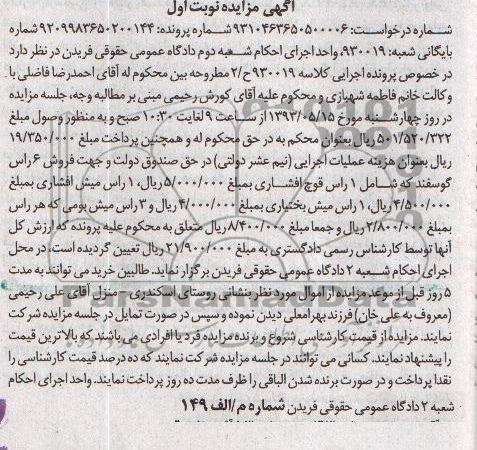 آگهی مزایده نوبت اول
شماره درخواست: ۹۳۱۰۴۶۳۶۵۰۵۰۰۰۰۶ شماره پرونده: ۹۲۰۹۹۸۳۶۵۰۲۰۰۱۴۴ شماره
بایگانی شعبه: ۹۳۰۰۱۹، واحد اجرای احکام شعبه دوم دادگاه عمومی حقوقی فریدن در نظر دارد
در خصوص پرونده اجرایی کلاسه ۹۳۰۰۱۹ ح/۲ مطروحه بین محکوم له آقای احمدرضا فاضلی با
وکالت خانم فاطمه شهبازی و محکوم علیه آقای کورش رحیمی مبنی بر مطالبه وجه، جلسه مزایده
در روز چهارشنبه مورخ ۱۳۹۳/۰۵/۱۵ از ساعت ۹ لغایت ۱۰:۳۰ صبح و به منظور وصول مبلغ
۵۰۱/۵۲۰/۳۲۲ ریال بعنوان محکم به در حق محکوم له و همچنین پرداخت مبلغ ۱۹/۳۵۰/۰۰۰
ریال بعنوان هزینه عملیات اجرایی (نیم عشر دولتی) در حق صندوق دولت و جهت فروش ۶ راس
گوسفند که شامل ۱ راس قوچ افشاری بمبلغ ۵/۰۰۰/۰۰۰ ریال، ۱ راس میش افشاری بمبلغ
۴/۵۰۰/۰۰۰ ریال، ۱ راس میش بختیاری بمبلغ ۴/۰۰۰/۰۰۰ ریال و ۳ راس میش بومی که هر راس
بمبلغ ۲/۸۰۰/۰۰۰ ریال و جمعا مبلغ ۸/۴۰۰/۰۰۰ ریال متعلق به محکوم علیه پرونده که ارزش کل
آنها توسط کارشناس رسمی دادگستری به مبلغ ۲۱/۹۰۰/۰۰۰ ریال تعیین گردیده است، در محل
اجرای احکام شعبه ۲ دادگاه عمومی حقوقی فریدن برگزار نماید. طالبین خرید می توانند به مدت
۵ روز قبل از موعد مزایده از اموال مورد نظر بنشانی روستای اسکندری - منزل آقای علی رحیمی
(معروف به علی خان) فرزند بهرامعلی دیدن نموده و سپس در صورت تمایل در جلسه مزایده شرکت
نمایند. مزایده از قیمت کارشناسی شروع و برنده مزایده فرد یا افرادی می باشند که بالاترین قیمت
را پیشنهاد نمایند. کسانی می توانند در جلسه مزایده شرکت نمایند که ده درصد قیمت کارشناسی را
نقدا پرداخت و در صورت برنده شدن الباقی را ظرف مدت ده روز پرداخت نمایند. واحد اجرای احکام
شعبه ۲ دادگاه عمومی حقوقی فریدن شماره م/الف ۱۴۹